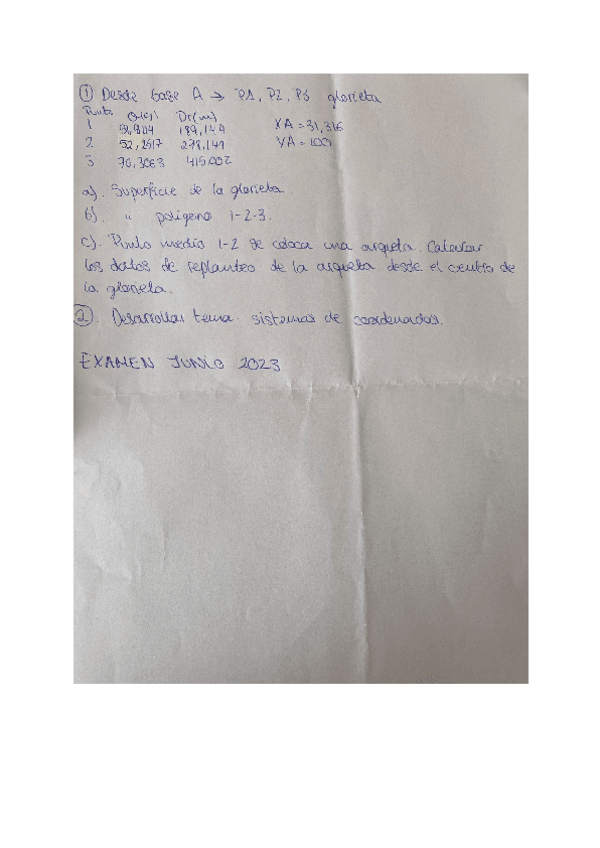 ① Desde base A → P1, P2, P3 glorieta
Punto θ(g) Dr(m)
1 189,149 XA = 31,316
2 278,149 YA = 100
3 70,3063 415.002
a). Superficie de la glorieta
b). " poligono 1-2-3.
c). Punto medio 1-2 se coloca una arqueta. Calcular
los datos de replanteo de la arqueta desde el centro de
la glorieta.
②. Desarrollar tema. sistemas de coordenadas.
EXAMEN JUNIO 2023